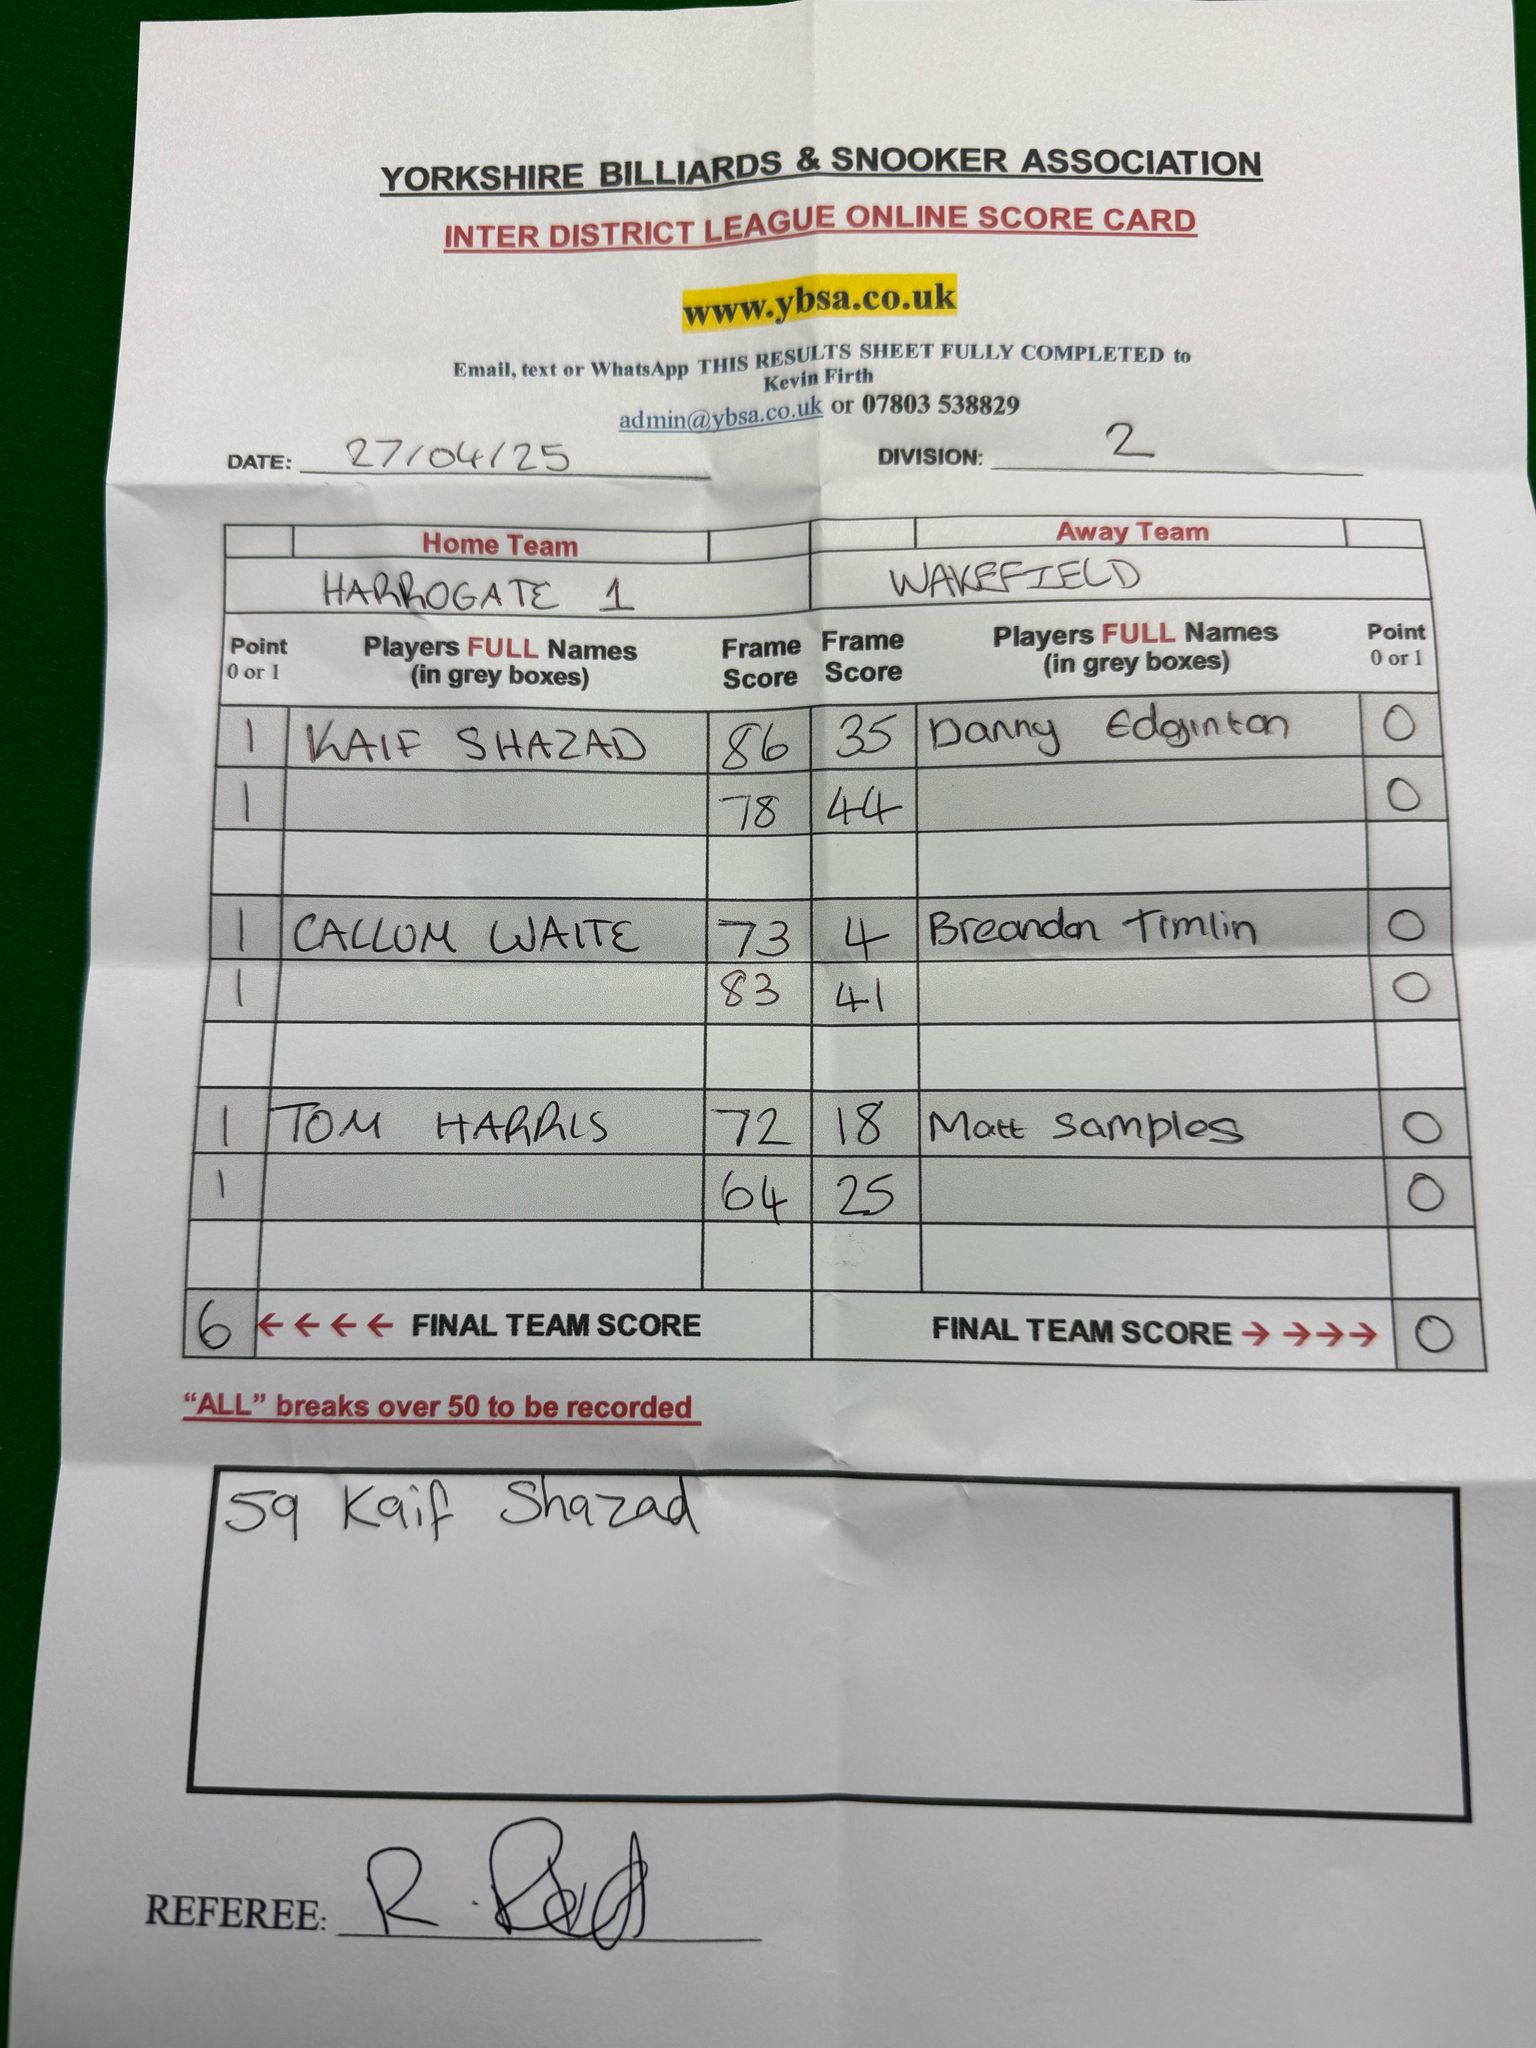 YORKSHIRE BILLIARDS & SNOOKER ASSOCIATION
INTER DISTRICT LEAGUE ONLINE SCORE CARD
www.ybsa.co.uk
Email, text or WhatsApp THIS RESULTS SHEET FULLY COMPLETED to
Kevin Firth
admin@ybsa.co.uk or 07803 538829
DATE: 27/04/25 DIVISION: 2
Home Team Away Team
HARROGATE 1 WAKEFIELD
Point Players FULL Names Frame Frame Players FULL Names Point
0 or 1 (in grey boxes) Score Score (in grey boxes) 0 or 1
1 KAIF SHAZAD 86 35 Danny Edginton 0
1 78 44 0
1 CALLUM WAITE 73 4 Breandan Timlin 0
1 83 41 0
1 TOM HARRIS 72 18 Matt Samples 0
1 64 25 0
6 ←←←← FINAL TEAM SCORE FINAL TEAM SCORE →→→→ 0
“ALL” breaks over 50 to be recorded
59 Kaif Shazad
REFEREE: R.